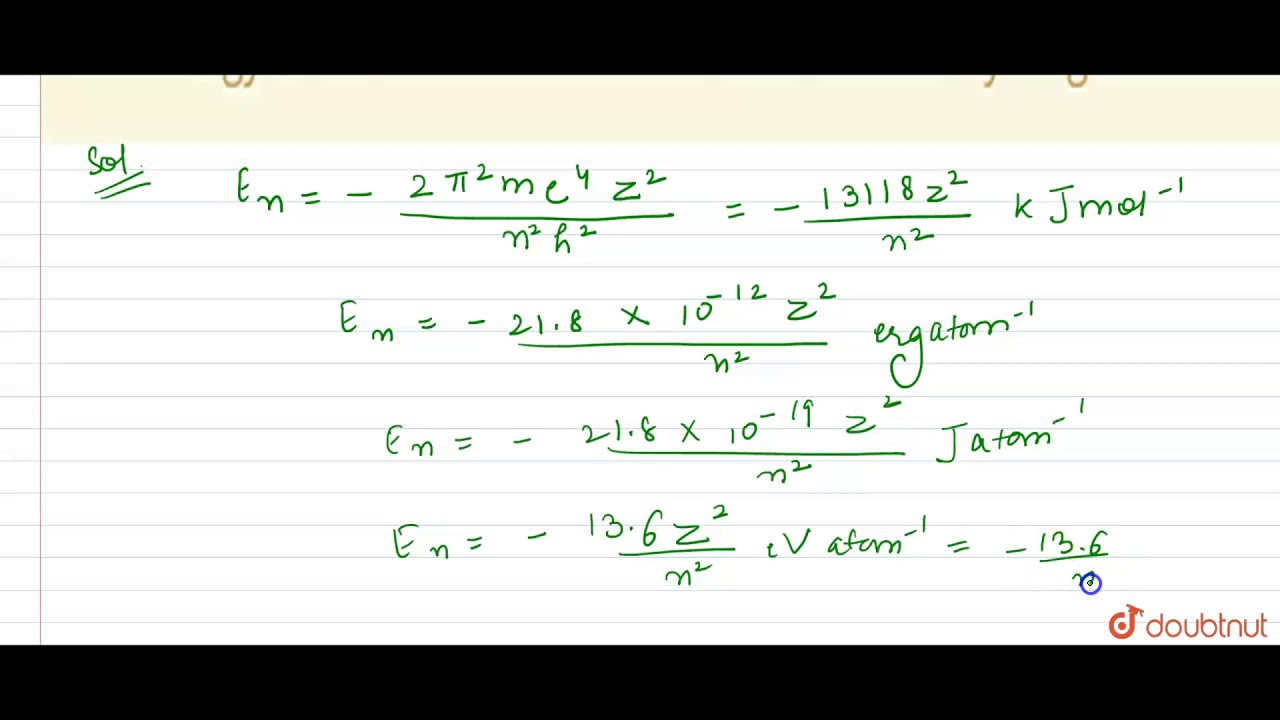 Sol.
En = - 2π²me⁴z² / n²h² = - 13118z² / n² kJmol⁻¹
En = - 21.8 × 10⁻¹² z² / n² erg atom⁻¹
En = - 21.8 × 10⁻¹⁹ z² / n² J atom⁻¹
En = - 13.6 z² / n² eV atom⁻¹ = - 13.6 / n
doubtnut